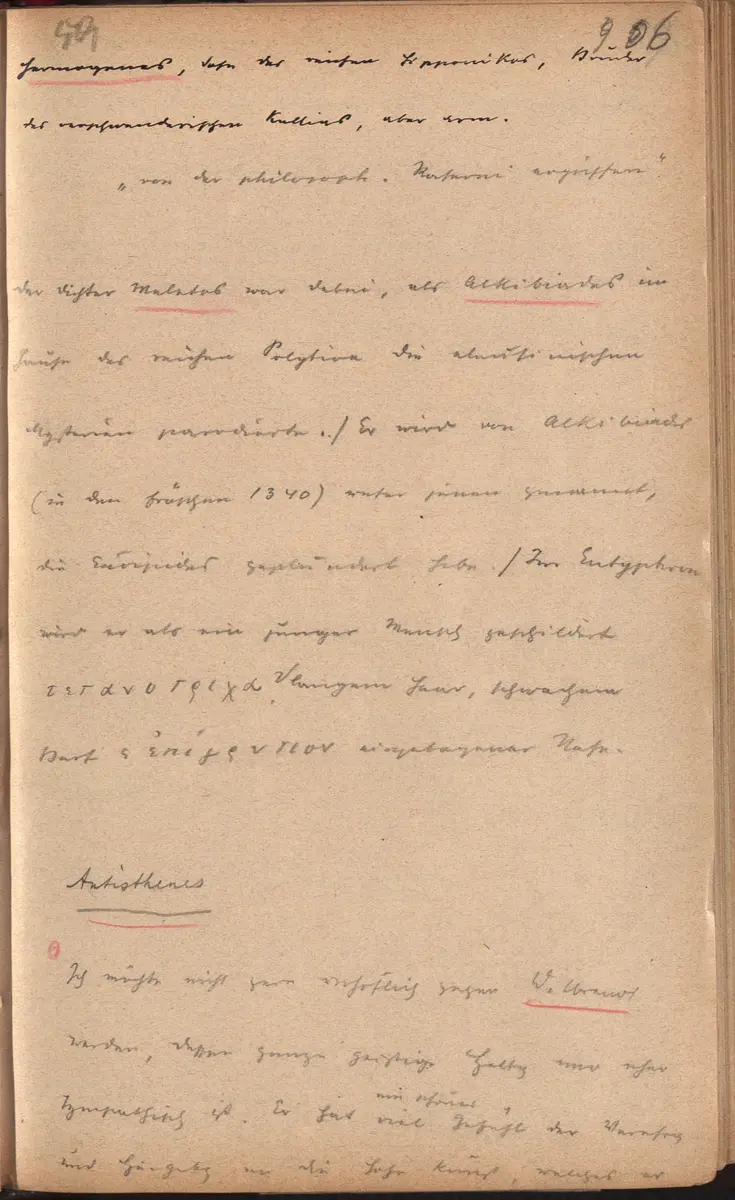 906
Hermogenes, Sohn des reichen Hipponikos, Bruder
des verschwenderischen Kallias, aber arm.
„von der philosoph. Raserei ergriffen"
der Dichter Meletos war dabei, als Alkibiades im
Hause des reichen Polytion die eleusinischen
Mysterien parodierte./ Er wird von Alkibiades
(in den Fröschen 1340) unter jenen genannt,
die Euripides geplündert habe./ Im Eutyphron
wird er als ein junger Mensch geschildert
τετανοτριχα langem Haar, schwachem
Bart ἐπίγρυπον eingebogener Nase.
Antisthenes
Ich möchte nicht gern unhöflich gegen
werden, dessen ganze geistige Haltg mir sehr
sympathisch ist. Er hat viel Gefühl der Verehrg
und Hingebg an die hohe Kunst, welches er